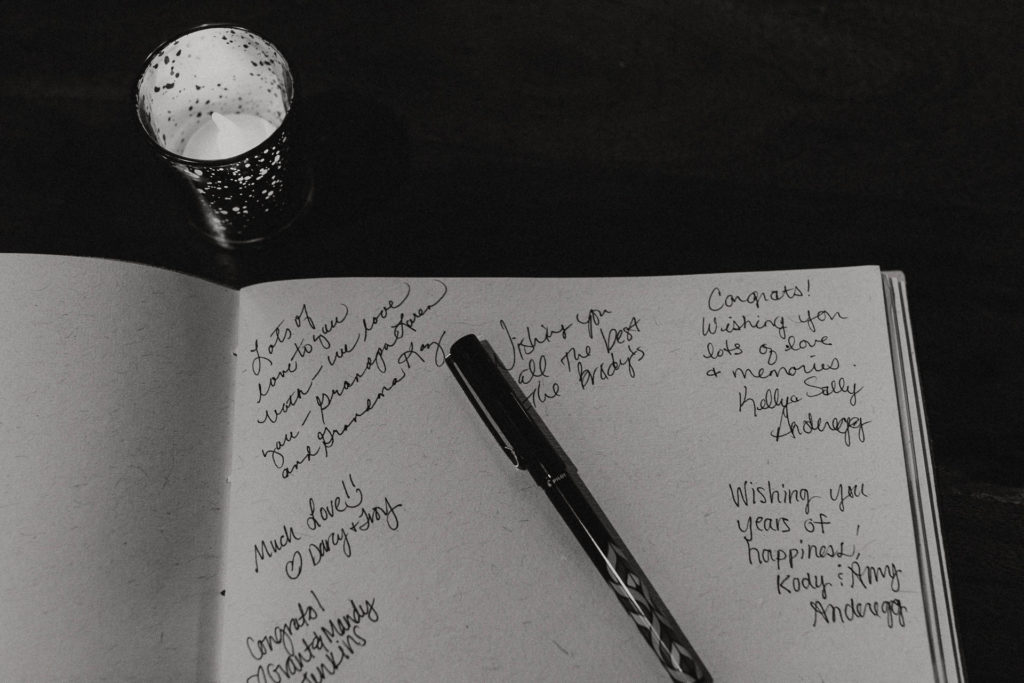 Lots of
love to you
both - we love
you - Grandpa Loren
and Grandma Kay
Much Love!!
♡ Darcy + Troy
Congrats!
♡ Grant & Mandy
Jenkins
Wishing you
all the best
The Brady's
Congrats!
Wishing you
lots of love
+ memories.
Kelly & Sally
Anderegg
Wishing you
years of
happiness,
Kody & Amy
Anderegg